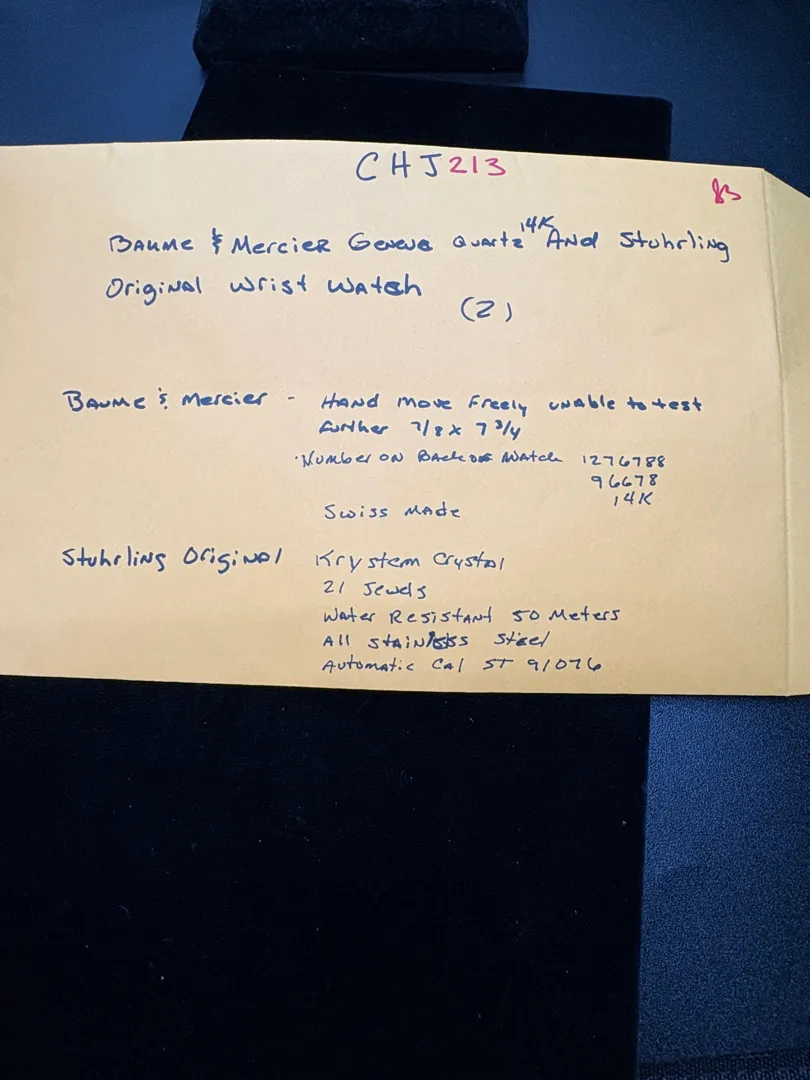 CHJ213
BAUME & Mercier Geneve Quartz 14K And Stuhrling
Original Wrist Watch
(2)
BAUME & Mercier - HAND move Freely unable to test
further 7/8 x 7 3/4
Number on Back of Watch 1276788
96678
14K
Swiss Made
Stuhrling Original Krystem Crystal
21 Jewels
Water Resistant 50 Meters
All stainless steel
Automatic Cal ST 91076